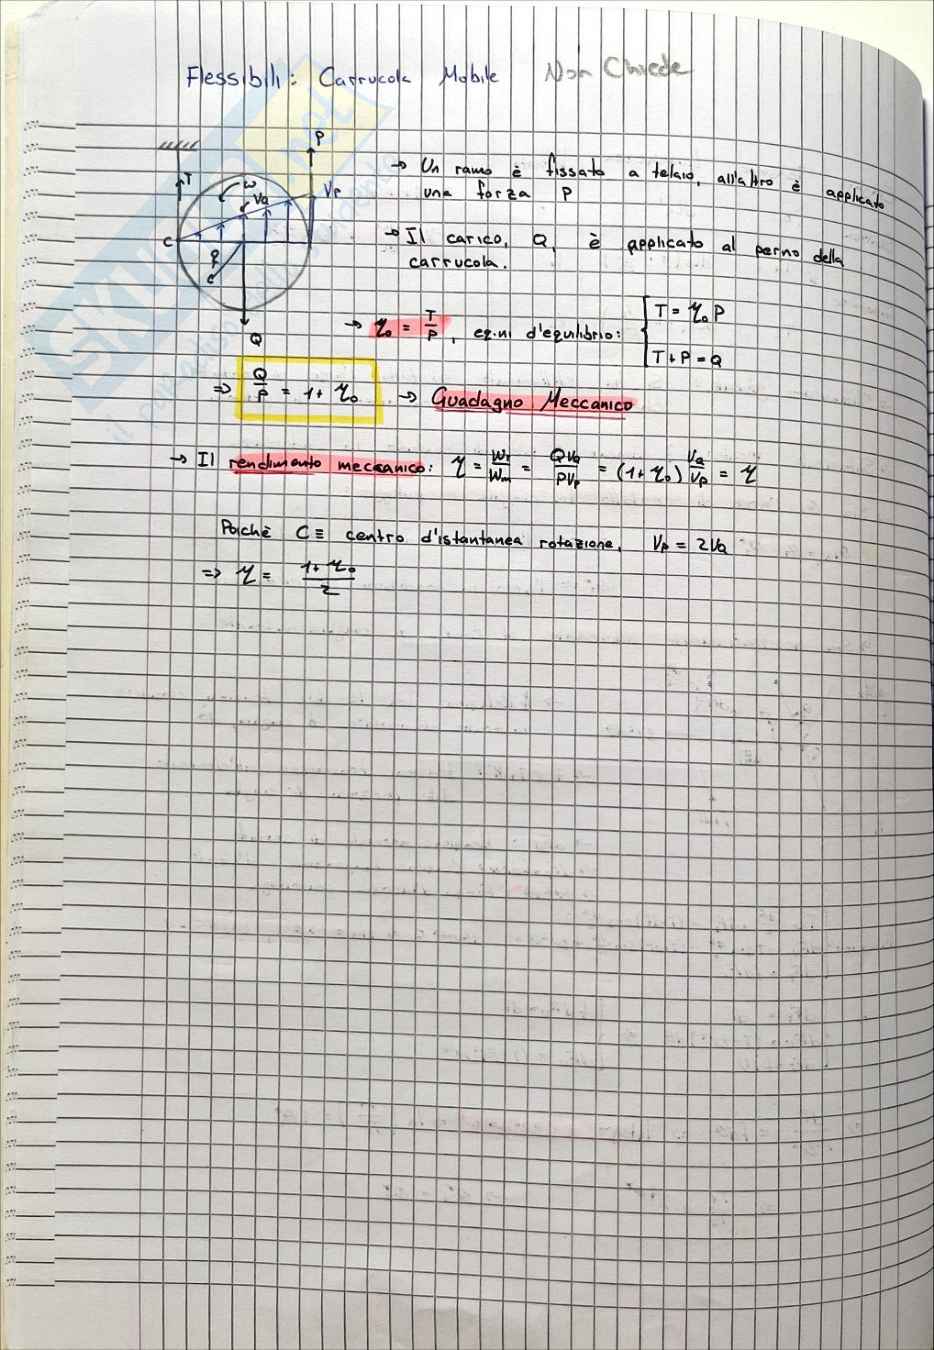 Flessibili: Carrucola Mobile Non Chiede
P
T
ω
VQ
VP
C
Q
→ Un ramo è fissato a telaio, all'altro è applicato
una forza P
→ Il carico, Q, è applicato al perno della
carrucola.
→ η₀ = T/P, eq.ni d'equilibrio: { T = η₀P
T + P = Q
⇒ Q/P = 1 + η₀ → Guadagno Meccanico
→ Il rendimento meccanico: η = Wr/Wm = QVQ/PVP = (1 + η₀) VQ/VP = η
Poichè C ≡ centro d'istantanea rotazione, VP = 2VQ
⇒ η = (1 + η₀)/2